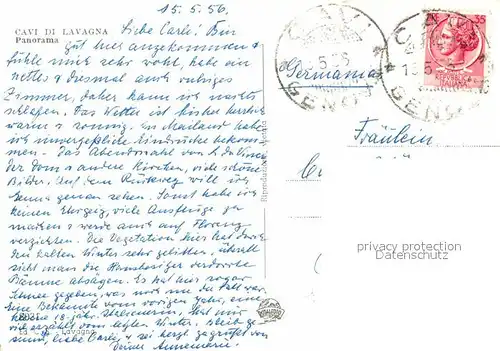 15.5.56.
CAVI DI LAVAGNA
Panorama
Liebe Carli! Bin
gut hier angekommen &
fühle mich sehr wohl, habe ein
nettes & diesmal auch ruhiges
Zimmer, daher kann ich nachts
schlafen. Das Wetter ist bisher herrlich
warm & sonnig. In Mailand habe
ich unvergeßliche Eindrücke bekom-
men. Das Abendmahl von L. da Vinci
der Dom & andere Kirchen, viele schöne
Bilder. Auf dem Rückweg will ich
Genua genau sehen. Sonst habe ich
keinen Ehrgeiz, viele Ausflüge zu
machen & werde auch auf Florenz
verzichten. Die Vegetation hier hat durch
den kalten Winter sehr gelitten. Überall
sieht man die Hausbesitzer verdorrte
Bäume absägen. Es hat hier sogar
Schnee gegeben, was noch nie der Fall war.
Eine Bekannte vom vorigen Jahr, eine
18-jähr. hat mir
viel erzählt vom letzten Winter. Bleib ge-
sund, liebe Carli, & sei herzl. gegrüßt von
Deiner Annemarie.
Germania
Fräulein
35
REPUBBLICA
ITALIANA
GENOVA
GENOVA
privacy protection
Datenschutz
Lavagna